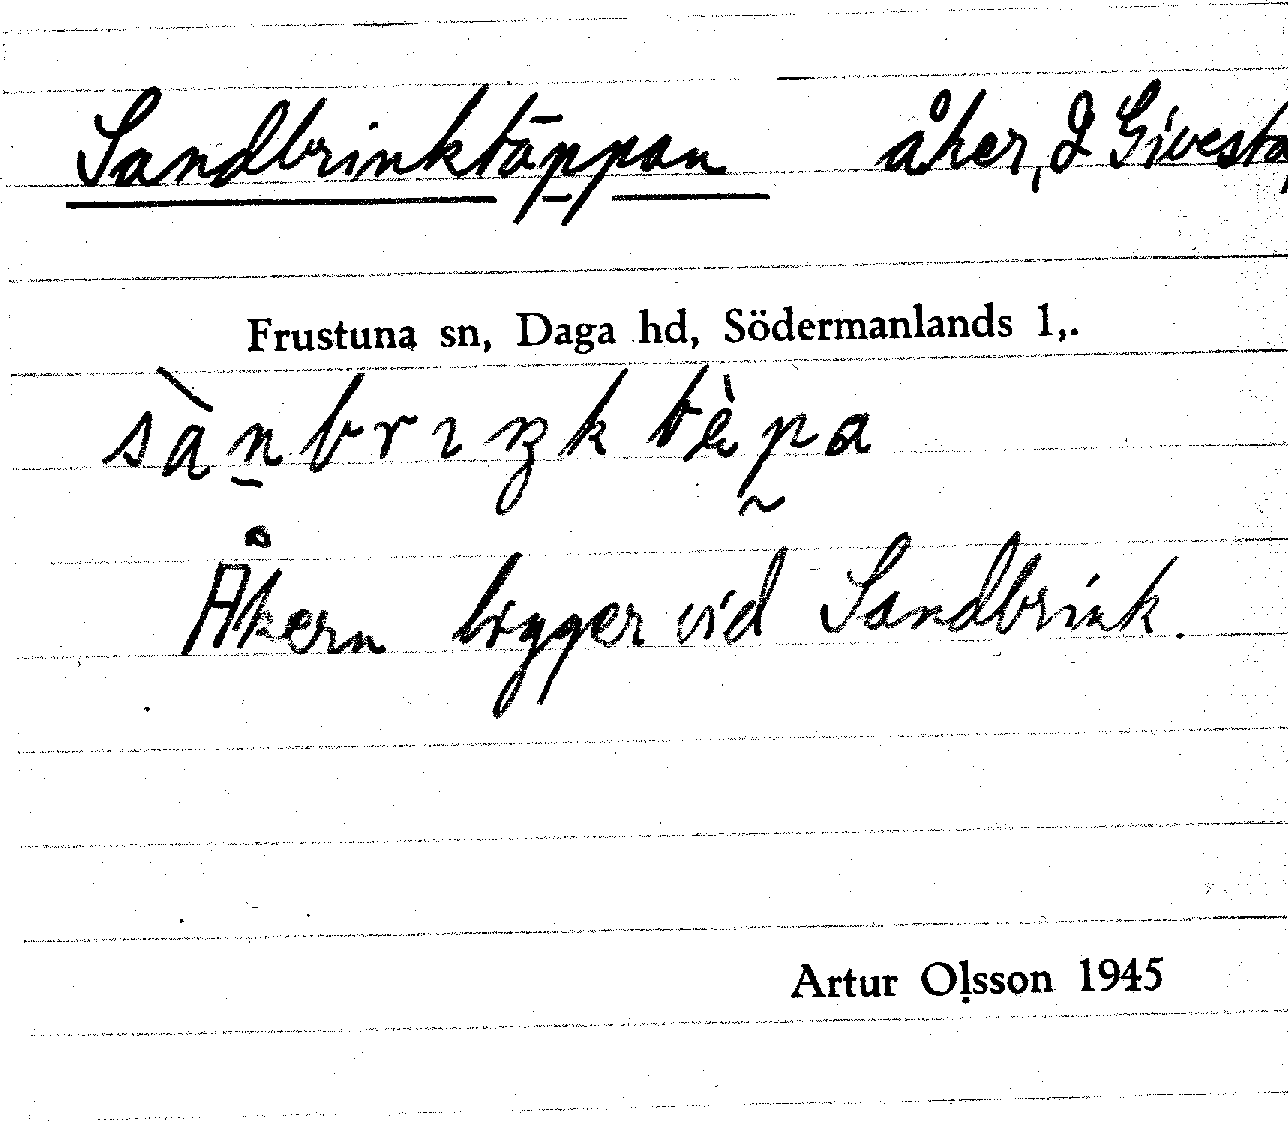 Sandbrinktäppan åker, I Givesta,
Frustuna sn, Daga hd, Södermanlands l,.
Åkern ligger vid Sandbrink.
Artur Olsson 1945